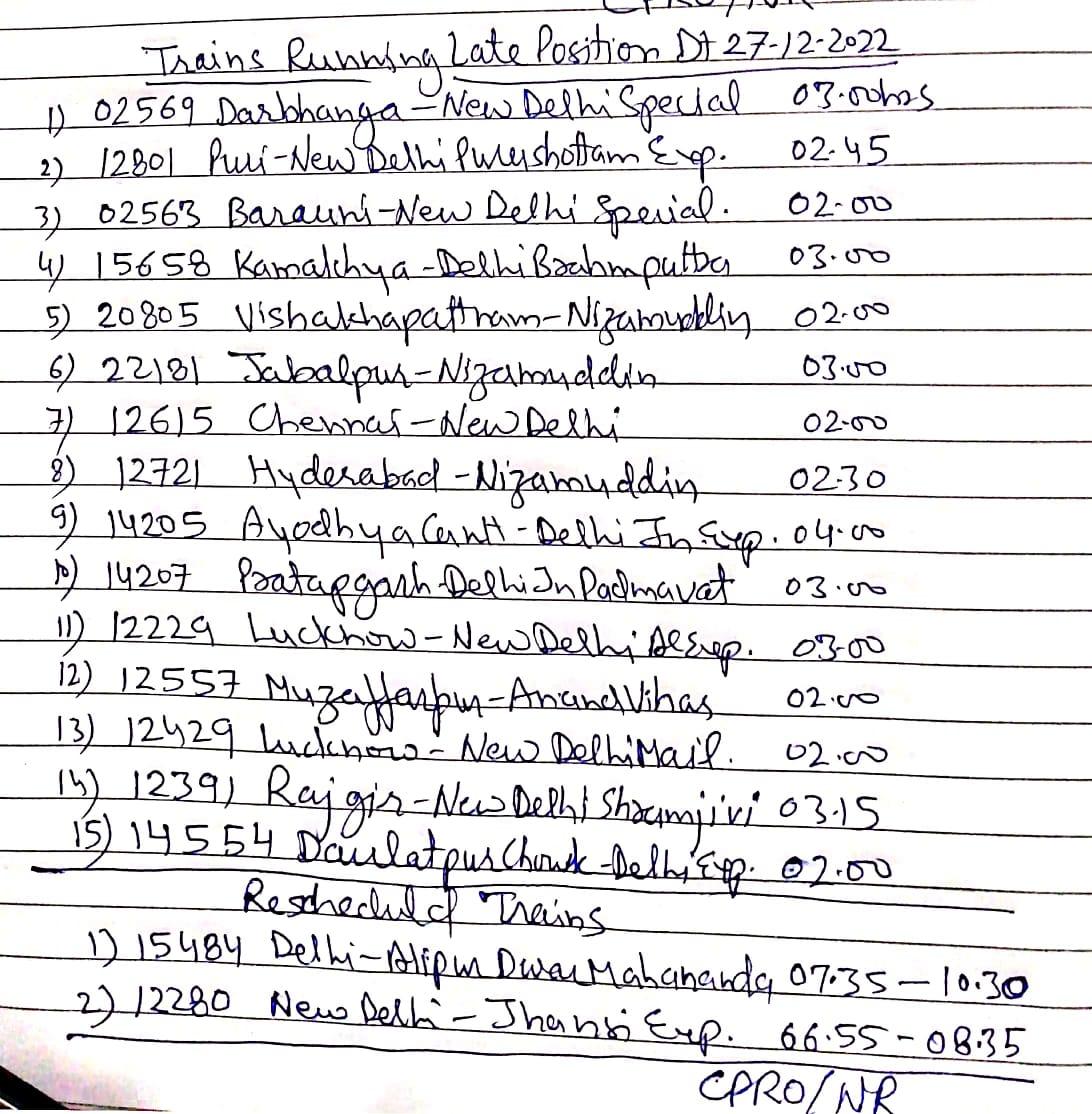 CPRO/NR
Trains Running Late Position Dt 27-12-2022
1) 02569 Darbhanga-New Delhi Special 03.00hrs
2) 12801 Puri-New Delhi Purushottam Exp. 02.45
3) 02563 Barauni-New Delhi Special. 02-00
4) 15658 Kamakhya-Delhi Brahmputra 03.00
5) 20805 Vishakhapattnam-Nizamuddin 02.00
6) 22181 Jabalpur-Nizamuddin 03.00
7) 12615 Chennai-New Delhi 02-00
8) 12721 Hyderabad-Nizamuddin 02.30
9) 14205 Ayodhya Cantt-Delhi Jn Exp. 04.00
10) 14207 Pratapgarh-Delhi Jn Padmavat 03.00
11) 12229 Lucknow-New Delhi Exp. 03-00
12) 12557 Muzaffarpur-Anand Vihar 02.00
13) 12429 Lucknow-New Delhi Mail. 02.00
14) 12391 Rajgir-New Delhi Shramjivi 03.15
15) 14554 Daulatpur Chowk-Delhi Exp. 02.00
Rescheduled Trains
1) 15484 Delhi-Alipur Dwar Mahananda 07.35-10.30
2) 12280 New Delhi-Jhansi Exp. 06.55-08.35
CPRO/NR